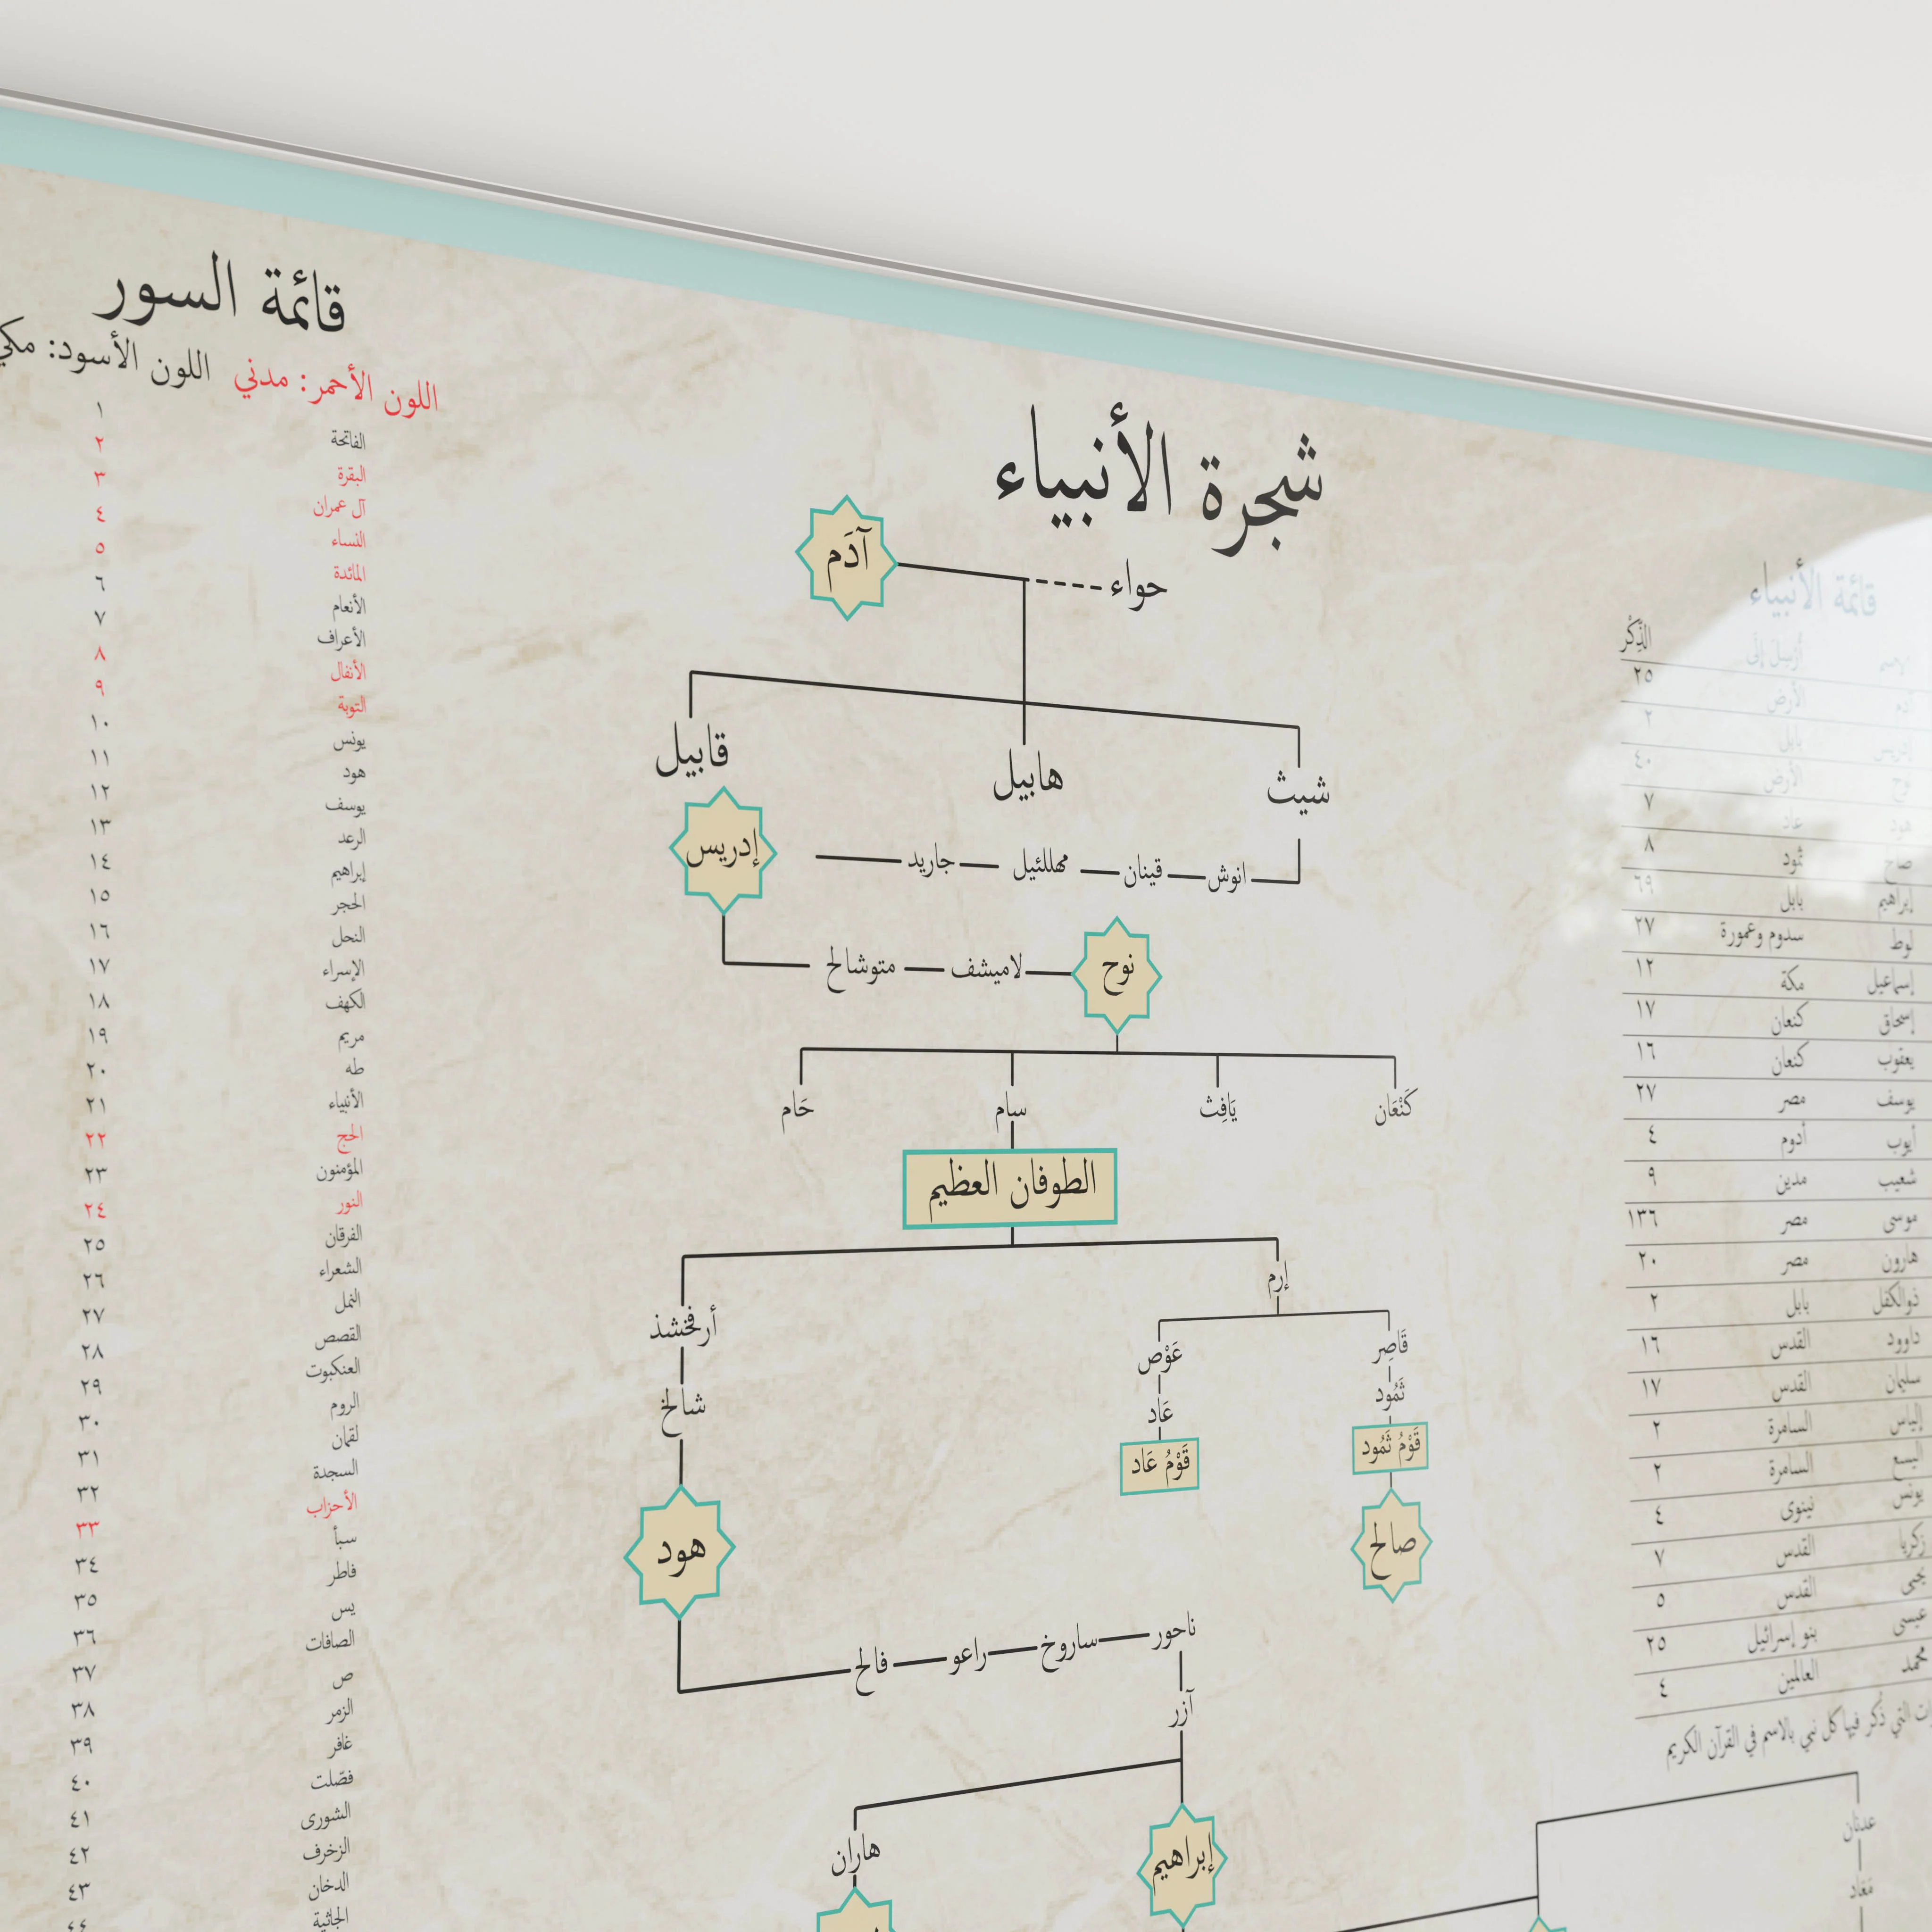 قائمة السور
اللون الأحمر: مدني اللون الأسود: مكي
الفاتحة ١
البقرة ٢
آل عمران ٣
النساء ٤
المائدة ٥
الأنعام ٦
الأعراف ٧
الأنفال ٨
التوبة ٩
يونس ١٠
هود ١١
يوسف ١٢
الرعد ١٣
إبراهيم ١٤
الحجر ١٥
النحل ١٦
الإسراء ١٧
الكهف ١٨
مريم ١٩
طه ٢٠
الأنبياء ٢١
الحج ٢٢
المؤمنون ٢٣
النور ٢٤
الفرقان ٢٥
الشعراء ٢٦
النمل ٢٧
القصص ٢٨
العنكبوت ٢٩
الروم ٣٠
لقمان ٣١
السجدة ٣٢
الأحزاب ٣٣
سبأ ٣٤
فاطر ٣٥
يس ٣٦
الصافات ٣٧
ص ٣٨
الزمر ٣٩
غافر ٤٠
فصّلت ٤١
الشورى ٤٢
الزخرف ٤٣
الدخان ٤٤
الجاثية
شجرة الأنبياء
آدَم
حواء
شيث هابيل قابيل
انوش قينان مهللئيل جاريد إدريس
نوح لاميشف متوشالح
كَنْعَان يَافِث سام حَام
الطوفان العظيم
إرم أرفخشذ
قَاصِر عَوْص شالخ
ثَمُود عَاد
قَوْمُ ثَمُود قَوْمُ عَاد
صالح هود
ناحور ساروخ راعو فالح
آزر
إبراهيم هاران
قائمة الأنبياء
أُرسِلَ إلَى الذِّكْر
الأرض ٢٥
إدريس بابل ٢
نوح الأرض ٤٠
هود عاد ٧
صالح ثمود ٨
إبراهيم بابل ٦٩
لوط سدوم وعمورة ٢٧
إسماعيل مكة ١٢
إسحاق كنعان ١٧
يعقوب كنعان ١٦
يوسف مصر ٢٧
أيوب أدوم ٤
شعيب مدين ٩
موسى مصر ١٣٦
هارون مصر ٢٠
ذوالكفل بابل ٢
داوود القدس ١٦
سليمان القدس ١٧
إلياس السامرة ٢
اليسع السامرة ٢
يونس نينوى ٤
زكريا القدس ٧
يحيى القدس ٥
عيسى بنو إسرائيل ٢٥
محمد العالمين ٤
التي ذُكر فيها كل نبي بالاسم في القرآن الكريم
عدنان
مَعَاد